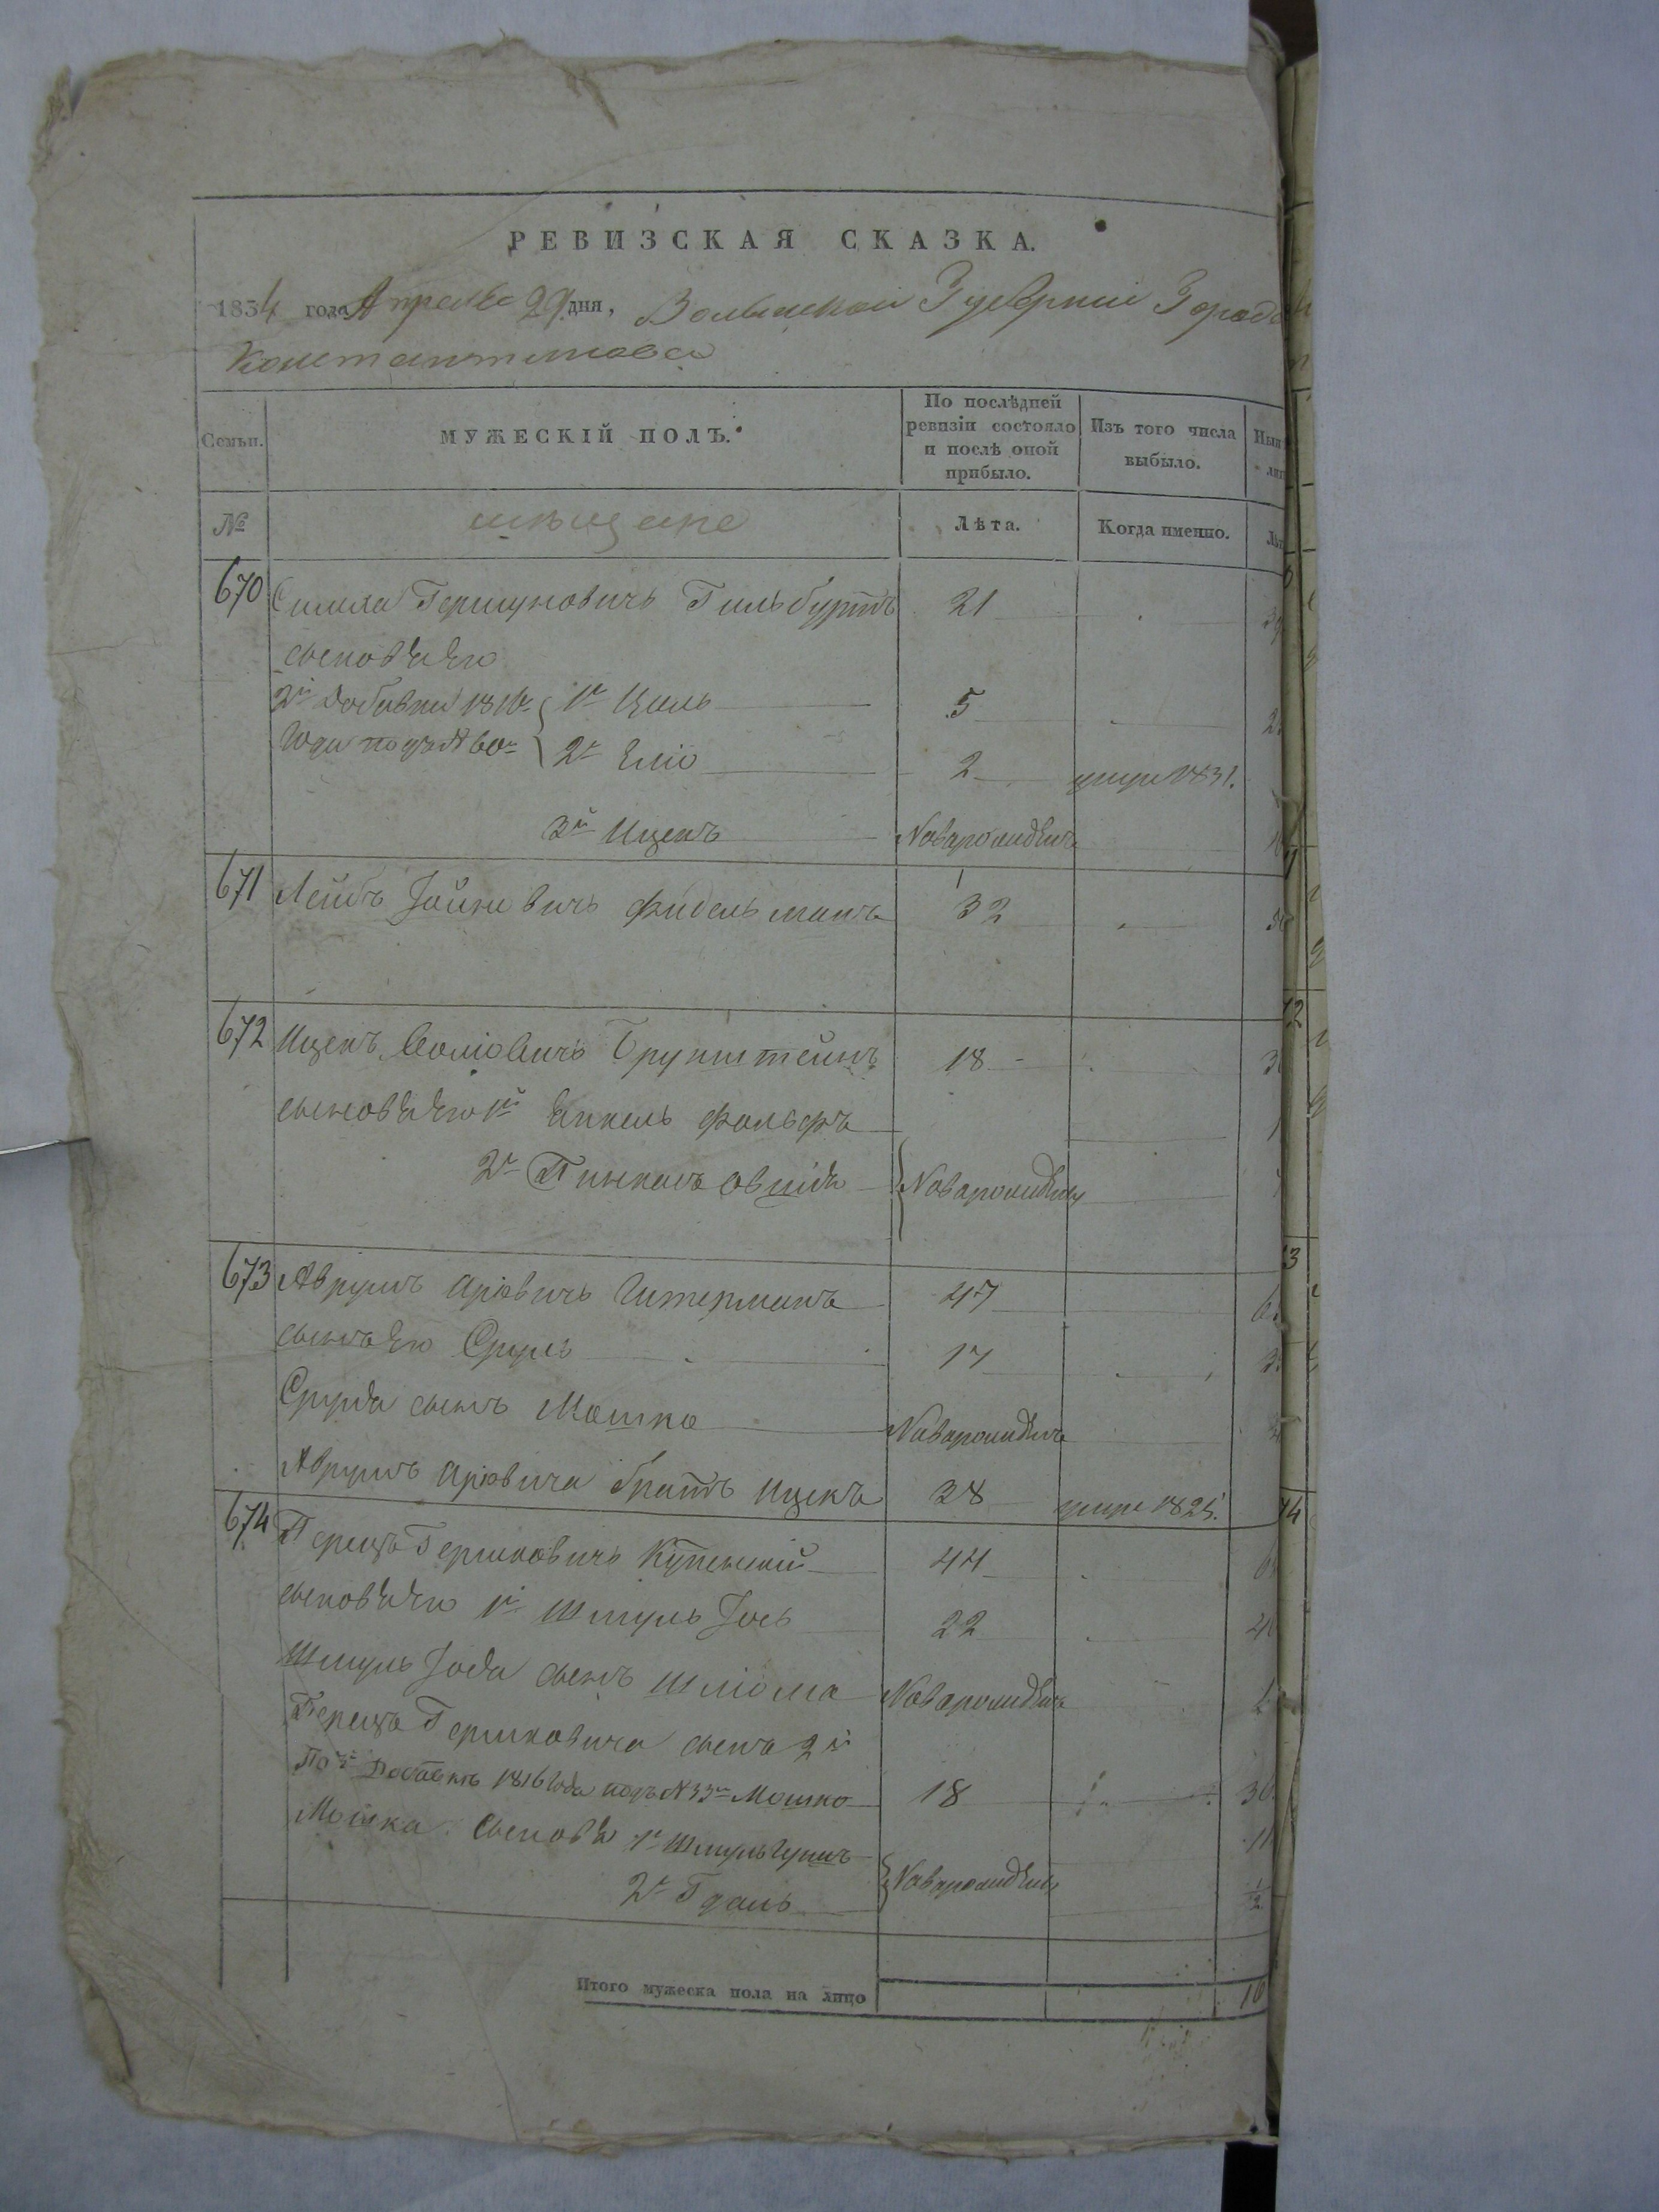 РЕВИЗСКАЯ СКАЗКА.
1834 года Апреля 29 дня, Волынской Губерніи Города
Константинова
Семьи. МУЖЕСКІЙ ПОЛЪ. По послѣдней ревизіи состояло и послѣ оной прибыло. Изъ того числа выбыло.
№ мѣщане Лѣта. Когда именно.
670 Гершуновичъ Гильбуртъ 21
сыновья его
1й 5
года подъ № 60м 2й Еліо 2 умре 1831.
3й Ицекъ Новарожденъ
671 Лейбъ Фидельманъ 32
672 Ицекъ Грунштейнъ 18
сыновья его 1й Янкель Фольфъ
2й Пинкасъ Новарожденны
673 Аврумъ Аріовичъ Гитерманъ 47
сынъ его Сруль 17
Сруля сынъ Мошко Новарожденъ
Аврумъ Аріовича братъ Ицекъ 38 умре 1825.
674 Перецъ Гершковичъ 44
сыновья его 1й Шмуль Іось 22
Шмуль Іося сынъ Шліома Новарожденъ
Переца Гершковича сынъ 2й
1816 года подъ № 33м Мошко 18 36.
Мошка сыновья 1й Шмуль 11
2й Гдаль Новарожденны 1/2
Итого мужеска пола на лицо 10